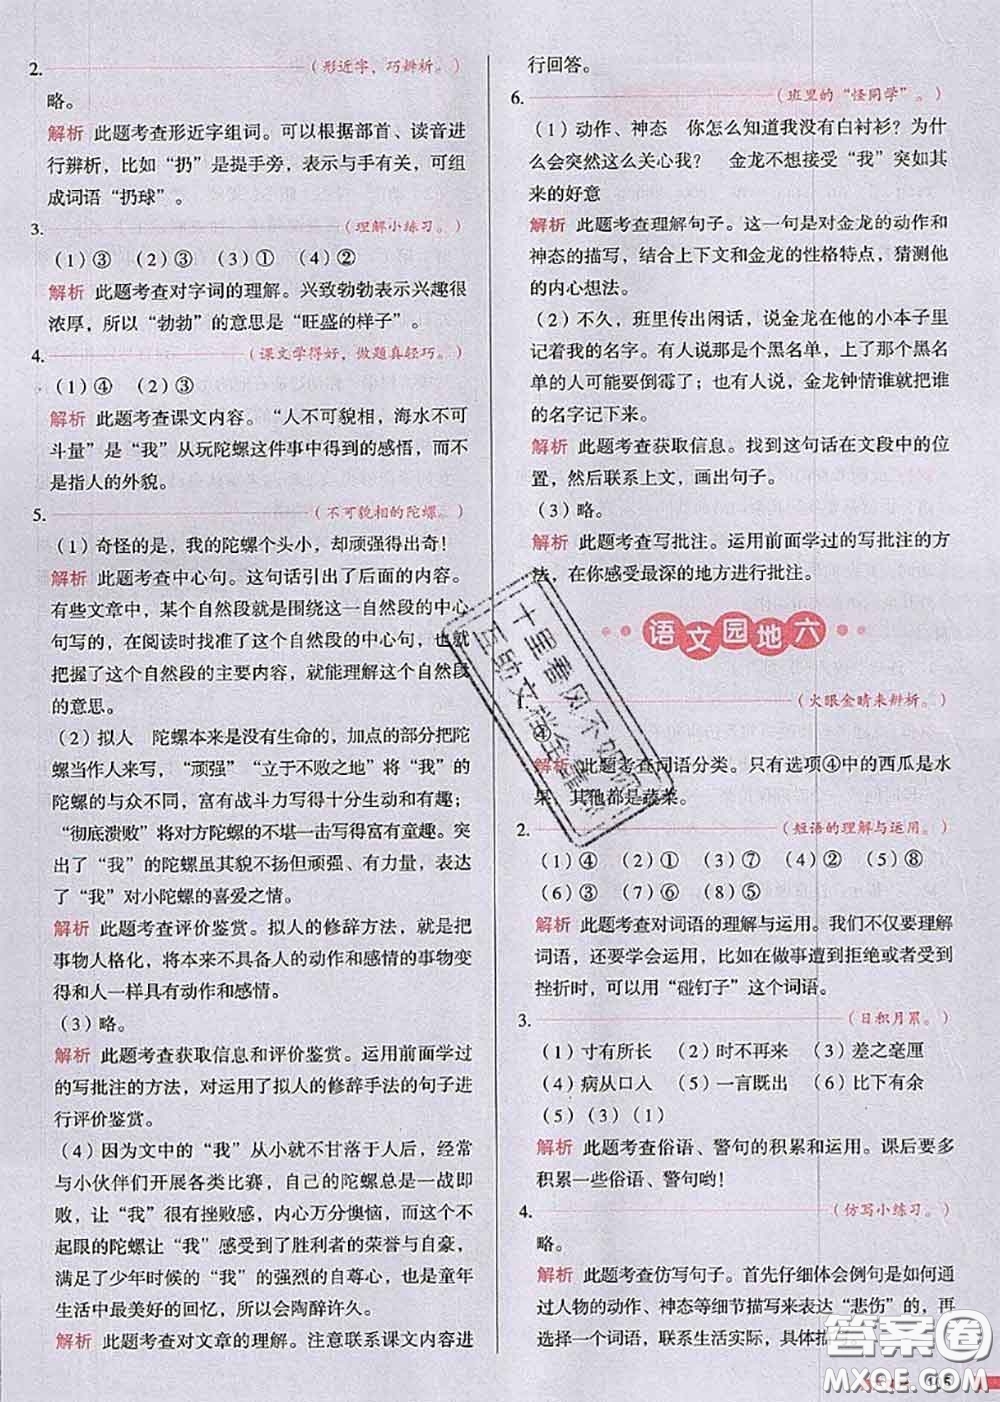 2.（形近字，巧辨析。）
略。
解析 此题考查形近字组词。可以根据部首、读音进
行辨析，比如“扔”是提手旁，表示与手有关，可组
成词语“扔球”。
3.（理解小练习。）
（1）③ （2）② （3）① （4）②
解析 此题考查对字词的理解。兴致勃勃表示兴趣很
浓厚，所以“勃勃”的意思是“旺盛的样子”。
4.（课文学得好，做题真轻巧。）
（1）④ （2）③
解析 此题考查课文内容。“人不可貌相，海水不可
斗量”是“我”从玩陀螺这件事中得到的感悟，而不
是指人的外貌。
5.（不可貌相的陀螺。）
（1）奇怪的是，我的陀螺个头小，却顽强得出奇！
解析 此题考查中心句。这句话引出了后面的内容。
有些文章中，某个自然段就是围绕这一自然段的中心
句写的，在阅读时找到了这个自然段的中心句，也就
把握了这个自然段的主要内容，这样有助于理解文章
的意思。
（2）拟人 陀螺本来是没有生命的，加点的部分把陀
螺当作人来写，“顽强”“立于不败之地”将“我”的
陀螺的与众不同，富有战斗力写得十分生动和有趣；
“彻底溃败”将对方陀螺的不堪一击写得富有童趣。突
出了“我”的陀螺虽其貌不扬但顽强、有力量，表达
了“我”对小陀螺的喜爱之情。
解析 此题考查评价鉴赏。拟人的修辞方法，就是把
事物人格化，将本来不具备人的动作和感情的事物变
得和人一样具有动作和感情。
（3）略。
解析 此题考查获取信息和评价鉴赏。运用前面学过
的写批注的方法，对运用了拟人的修辞手法的句子进
行评价鉴赏。
（4）因为文中的“我”从小就不甘落于人后，经常
与小伙伴们开展各类比赛，自己的陀螺总是一战即
败，让“我”很有挫败感，内心万分懊恼，而这个不
起眼的陀螺让“我”感受到了胜利者的荣誉与自豪，
满足了少年时候的“我”的强烈的自尊心，也是童年
生活中最美好的回忆，所以会陶醉许久。
解析 此题考查对文章的理解。注意联系课文内容进
行回答。
6.（班里的“怪同学”。）
（1）动作、神态 你怎么知道我没有白衬衫？为什
么会突然这么关心我？ 金龙不想接受“我”突如其
来的好意
解析 此题考查理解句子。这一句是对金龙的动作和
神态的描写，结合上下文和金龙的性格特点，猜测他
的内心想法。
（2）不久，班里传出闲话，说金龙在他的小本子里
记着我的名字。有人说那是个黑名单，上了那个黑名
单的人可能要倒霉了；也有人说，金龙钟情谁就把谁
的名字记下来。
解析 此题考查获取信息。找到这句话在文段中的位
置，然后联系上文，画出句子。
（3）略。
解析 此题考查写批注。运用前面学过的写批注的方
法，在你感受最深的地方进行批注。
语文园地六
1.（火眼金睛来辨析。）
④
解析 此题考查词语分类。只有选项④中的西瓜是水
果，其他都是蔬菜。
2.（短语的理解与运用。）
（1）④ （2）① （3）⑦ （4）② （5）⑧
（6）③ （7）⑥ （8）⑤
解析 此题考查对词语的理解与运用。我们不仅要理解
词语，还要恰当地运用，比如在做事遭到拒绝或者受到
挫折时，可以用“碰钉子”这个词语。
3.（日积月累。）
（1）寸有所长 （2）时不再来 （3）差之毫厘
（4）病从口入 （5）一言既出 （6）比下有余
（5）（3）（1）
解析 此题考查俗语、警句的积累和运用。课后要多
积累一些俗语、警句哟！
4.（仿写小练习。）
略。
解析 此题考查仿写句子。首先仔细体会例句是如何通
过人物的动作、神态等细节描写来表达“悲伤”的，再
选择一个词语，联系生活实际，具体描
十里春风不如你
互助文档全靠
答案圈
MXQE.COM
105